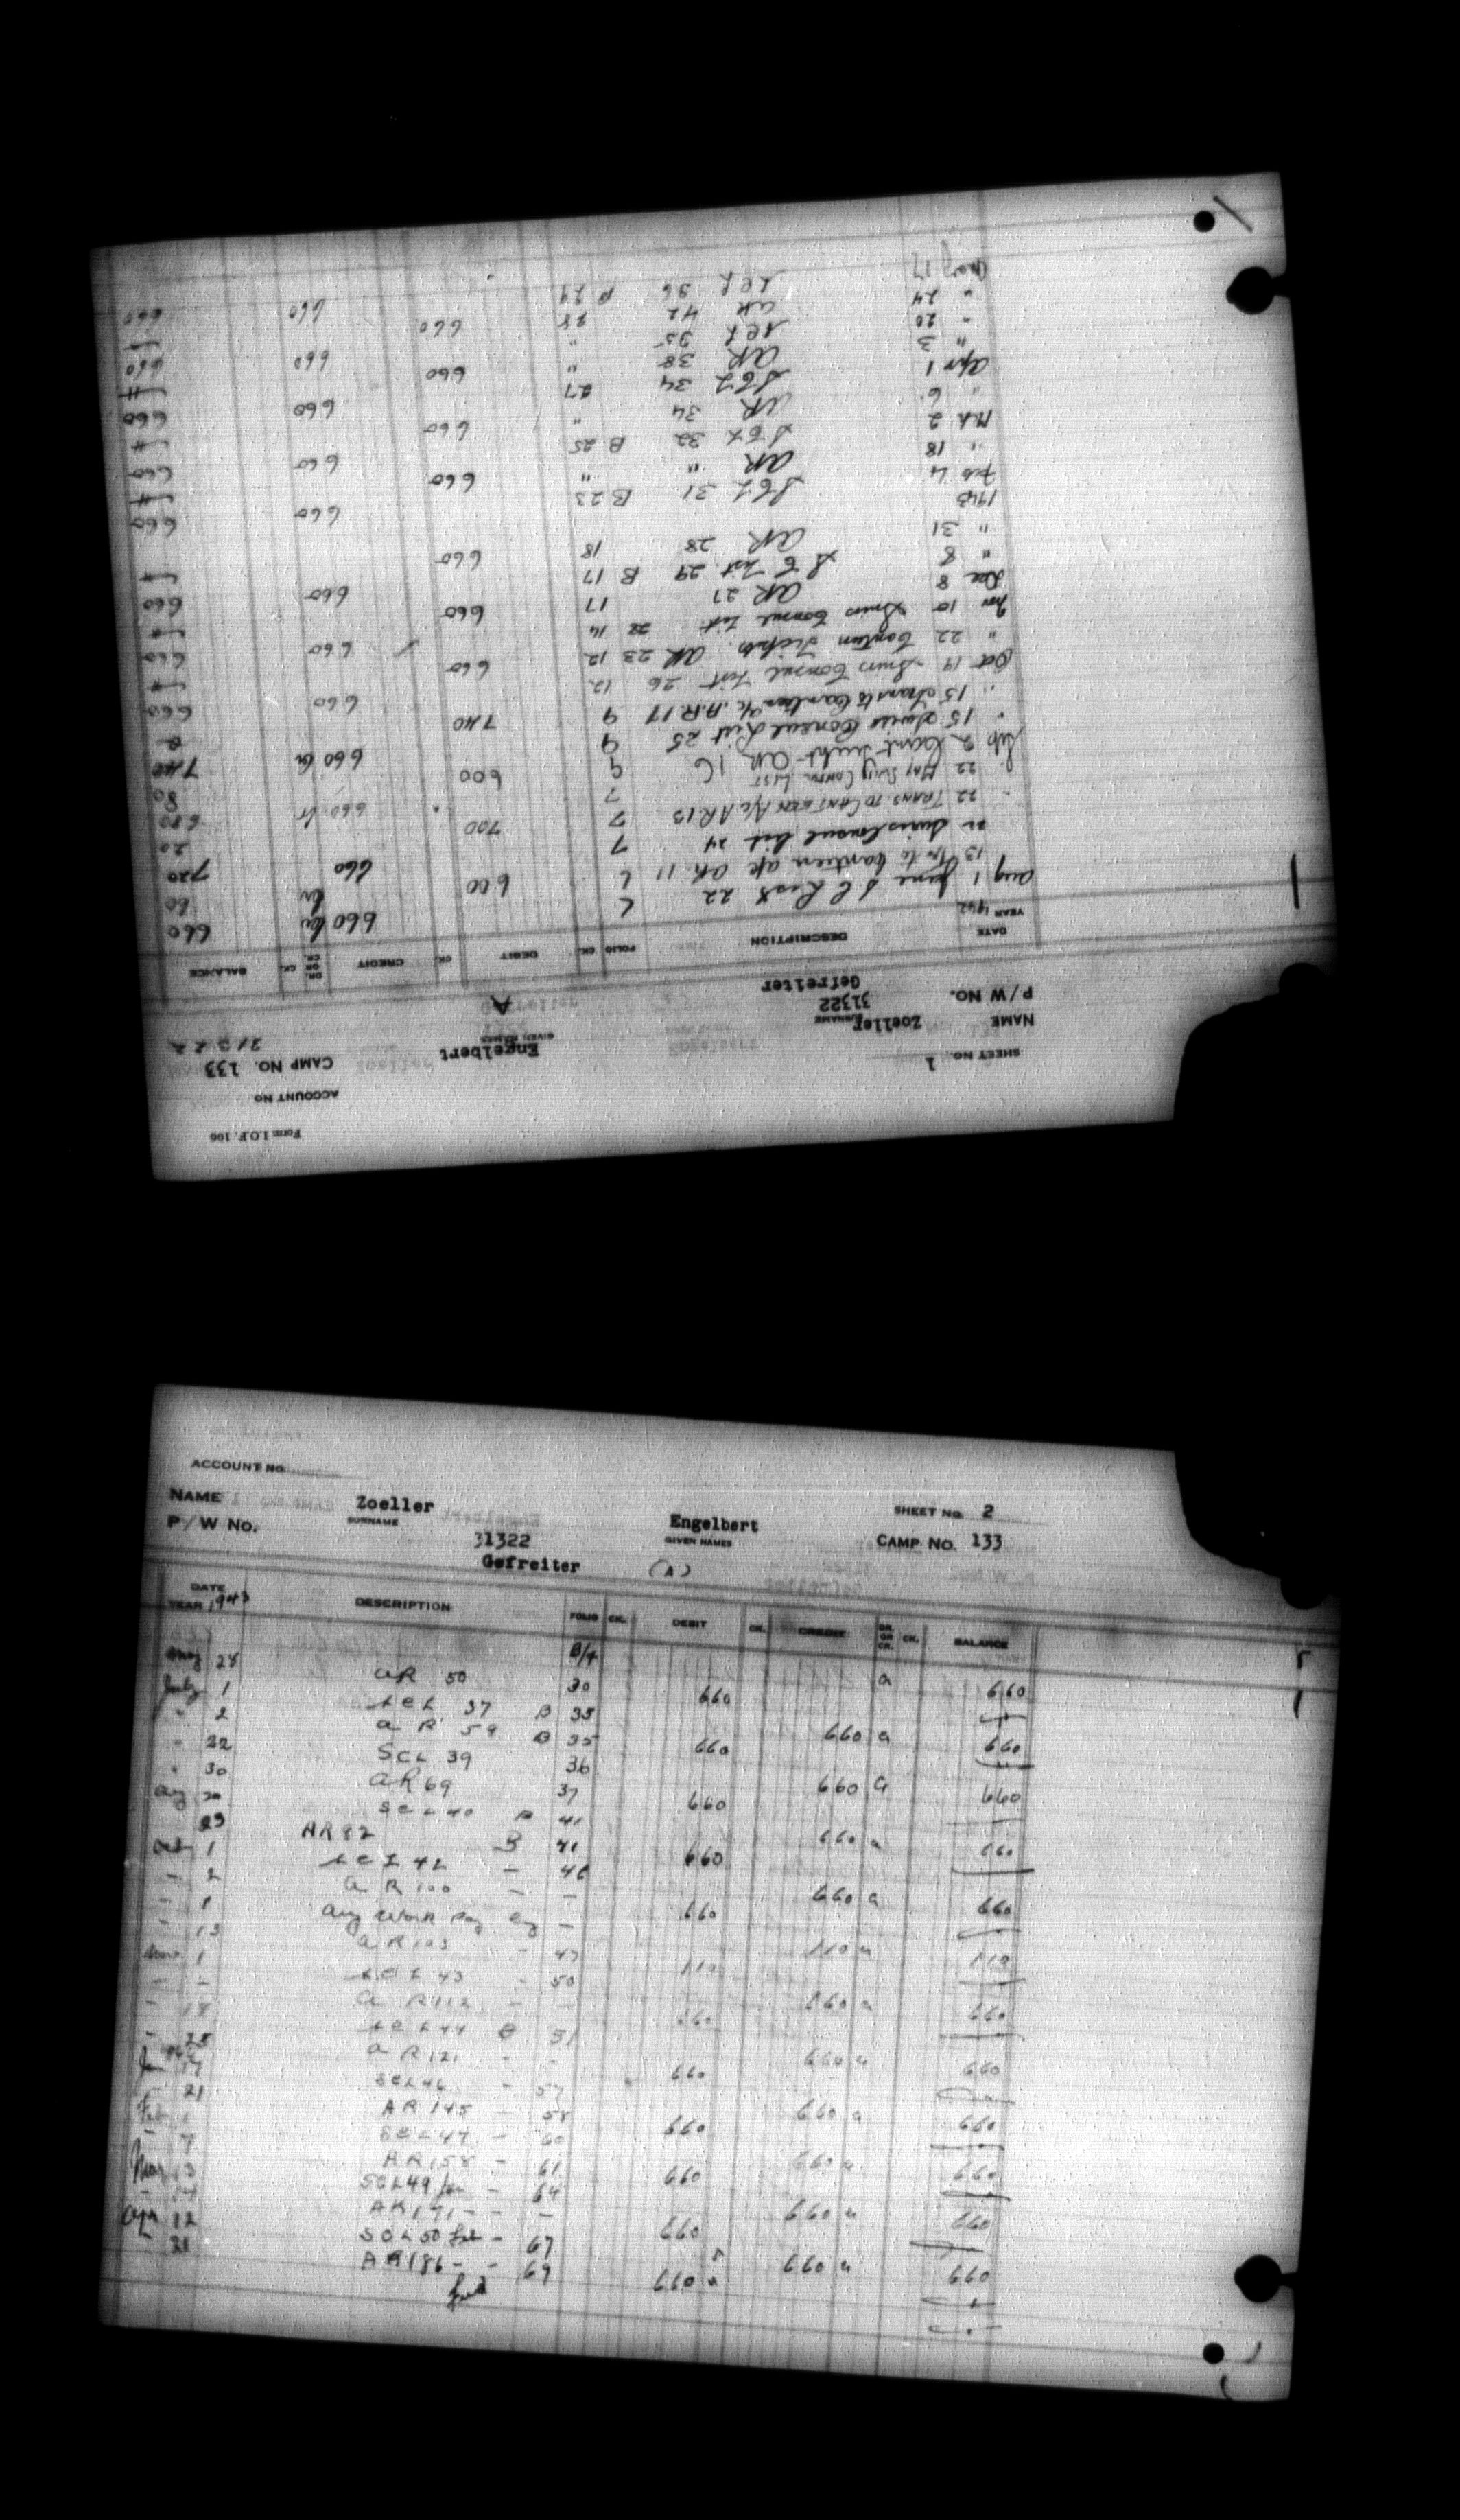 Form I.O.F. 166
ACCOUNT NO
SHEET NO. 1
CAMP NO. 133
31322
NAME Zoeller Engelbert
SURNAME GIVEN NAMES
P/W NO. 31322
Gefreiter A
DATE DESCRIPTION FOLIO CK. DEBIT CK. CREDIT DR. OR CR. CK. BALANCE
YEAR 1942
Aug 1 June S C List 22 6 660 Cr 660
13 to Canteen a/c AR 11 6 600 60
Swiss Consul List 24 7 660 720
22 TRANS. TO CANTEEN A/C AR 13 7 700 20
22 MAY SWISS CONSUL LIST 7 660 Cr 680
Sep 2 AR 16 9 600 80
15 Swiss Consul List 25 9 660 Cr 740
" 15 Trans to Canteen a/c A.R. 17 9 740
Oct 14 Swiss Consul List 26 12 660 660
" 22 Canteen Tickets AR 23 12 660
Nov 10 Swiss Consul List 28 14 660 660
Dec 8 AR 27 17 660
" 8 S C List 29 B 17 660 660
" 31 AR 28 18 660
1943
Feb 4 S C L 31 B 23 660 660
" 18 AR " " 660
Mch 2 S C L 32 B 25 660 660
" 6 AR 34 " 660
Apr 1 S C L 34 27 660 660
" 3 AR 38 " 660
" 20 S C L 35 " 660 660
" 24 AR 42 28 660
May 17 S C L 36 B 29 660 660
ACCOUNT NO
NAME Zoeller Engelbert SHEET NO. 2
SURNAME GIVEN NAMES
P/W No. 31322 CAMP No. 133
Gefreiter (A)
DATE DESCRIPTION FOLIO CK. DEBIT CK. CREDIT DR. OR CR. CK. BALANCE
YEAR 1943
B/f 660
May 28 AR 50 30 660
July 1 S C L 37 B 35 660 660
" 2 A R 59 B 35 660
" 22 SCL 39 36 660 660
" 30 AR 69 37 660
Aug 20 SCL 40 B 41 660 660
23 AR 82 B 41 660
Oct 1 S C L 42 - 46 660 660
- 2 A R 100 - - 660
- 1 Aug Work Pay - 110 110
- 13 A R 103 - 47 110
1 S C L 43 - 50 660 660
- - A R 112 - - 660
- 18 S C L 44 B 51 660 660
- 25 A R 121 - - 660
Jan SCL 46 - 57 660 660
21 AR 145 - 58 660
Feb 1 SCL 47 - 60 660 660
- 7 AR 158 - 61 660
Mar 13 SCL 49 Jan - 64 660 660
AR 171 - - 660
Apr 12 SCL 50 Feb - 67 660 660
21 AR 186 - - 69 660